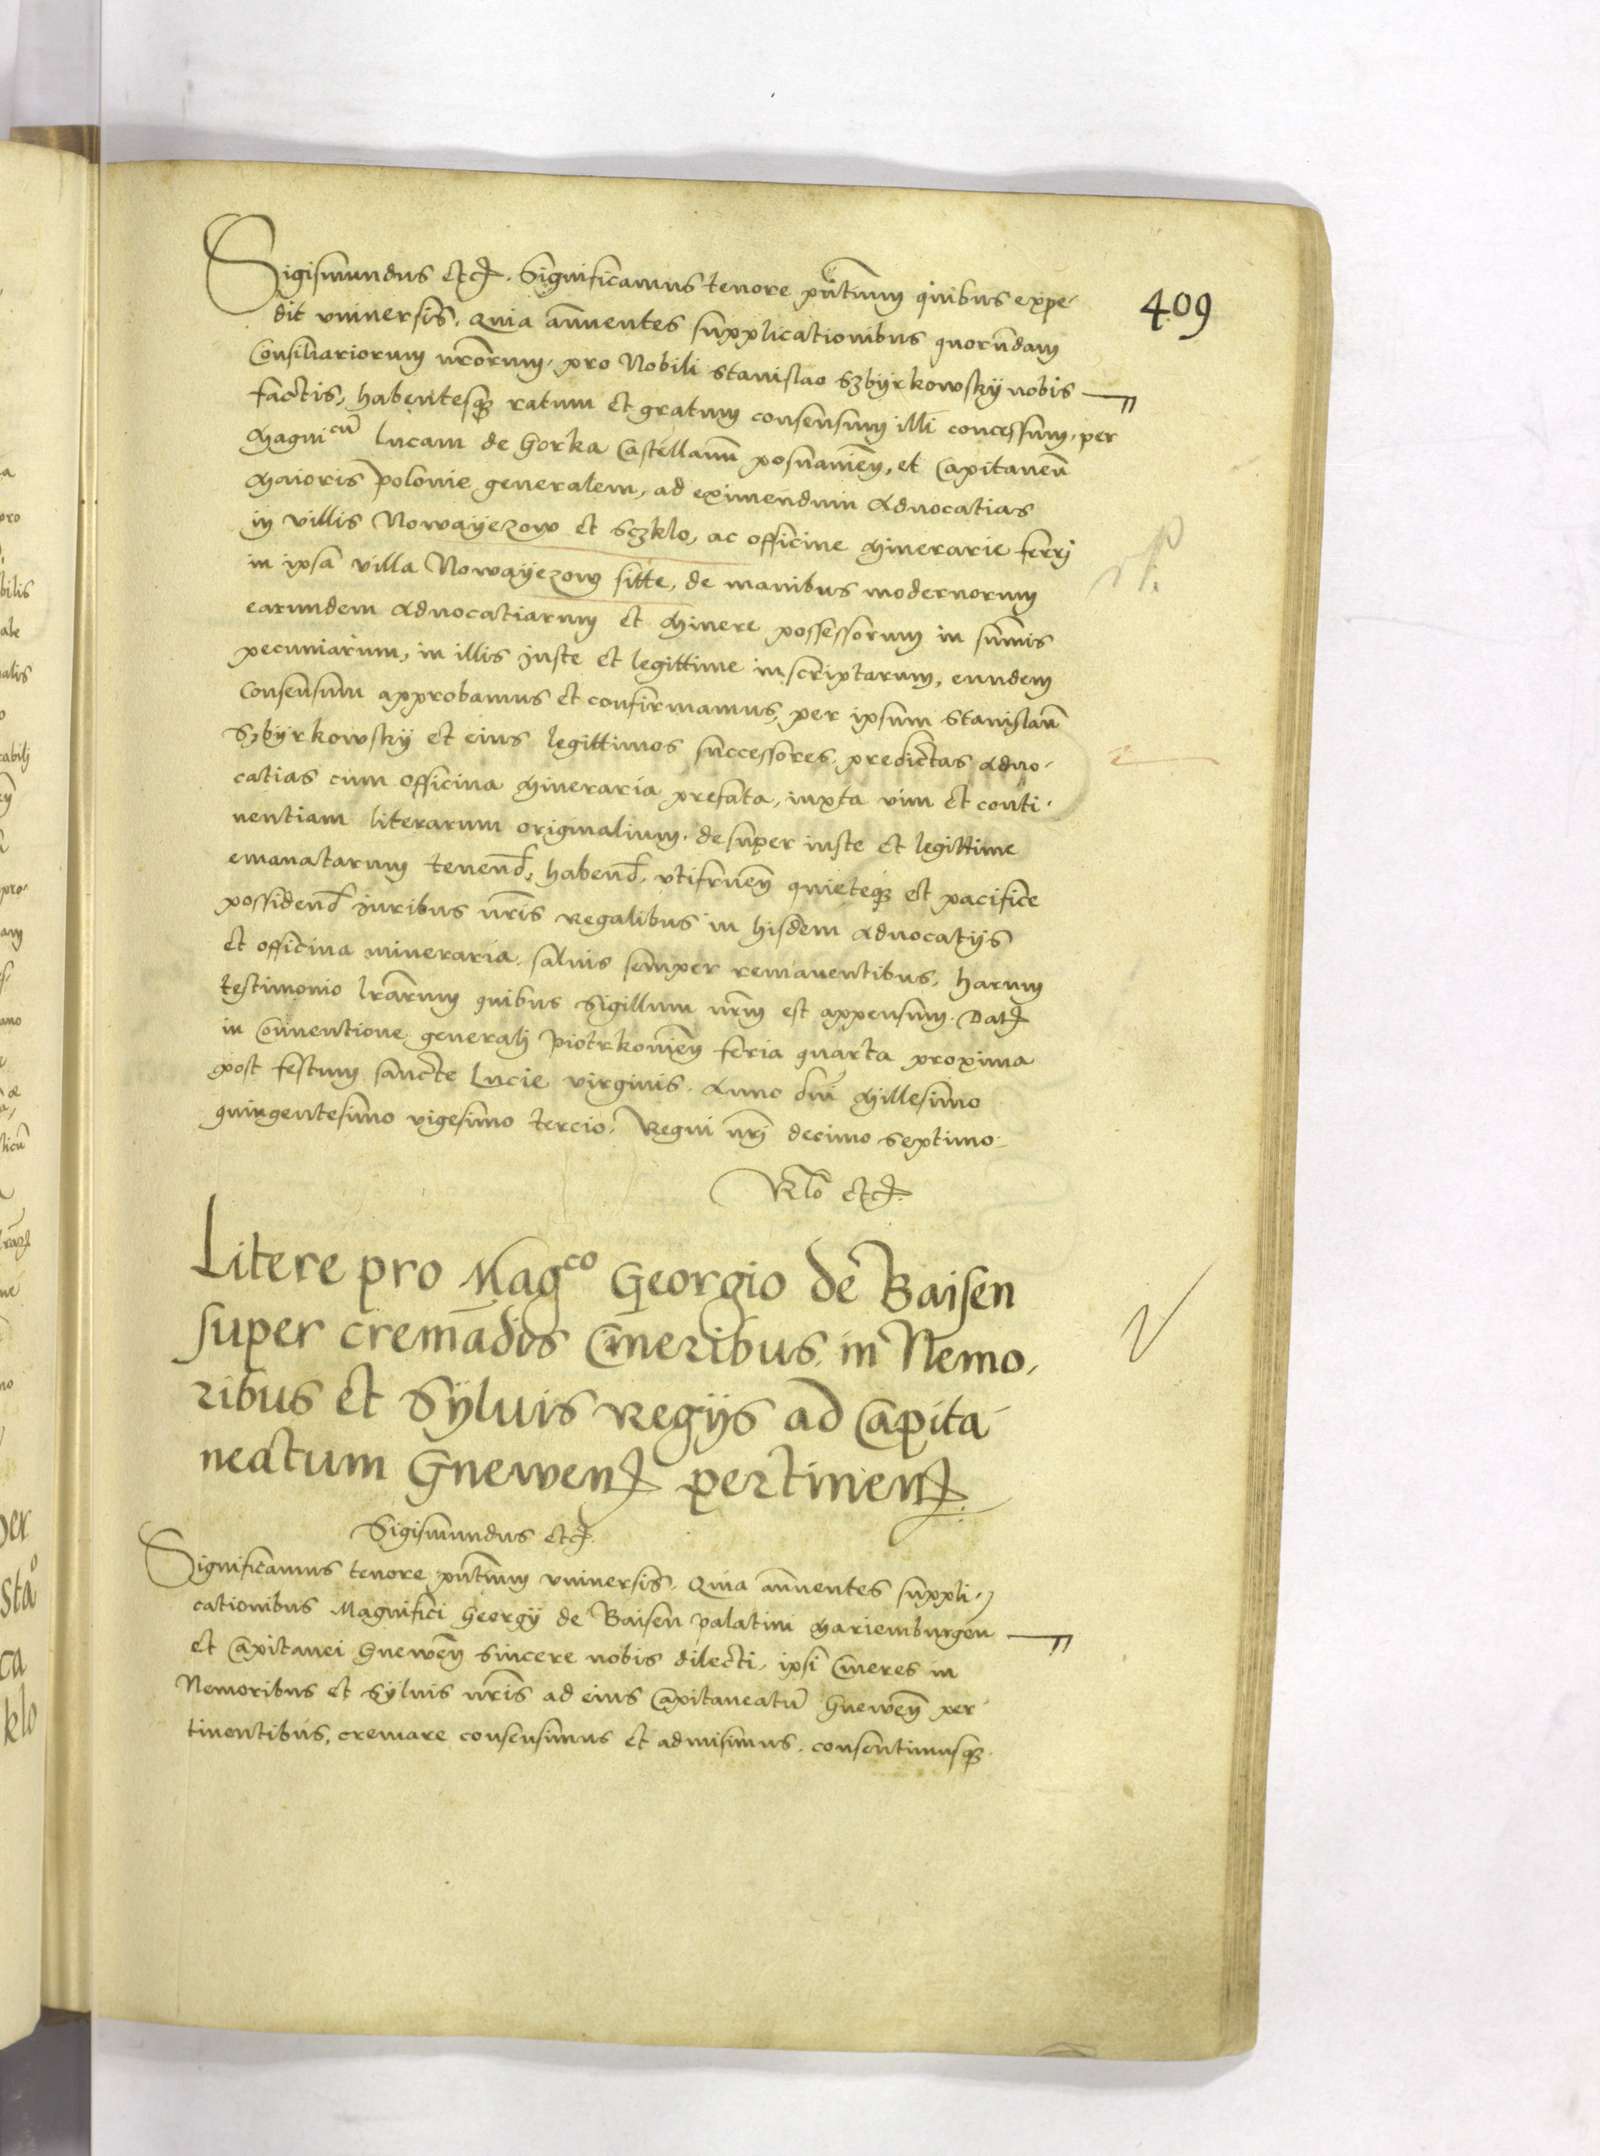 409
Sigismundus etc. Significamus tenore pñtium quibus expe-
dit vniuersis. Quia annuentes supplicationibus quorundam
Consiliariorum nrorum. pro Nobili Stanislao Szbyrkowsky nobis
factis, habentesq ratum et gratum consensum illi concessum. per
Magnicu Lucam de Gorka Castellanu posnanien, et Capitaneu
Maioris polonie generalem, ad eximendum Aduocatias
in villis Nowayezow et Sczklo, ac officine Minerarie ferrj
in ipsa villa Nowayezow sitte, de manibus modernorum
earundem Aduocatiarum et Minere possessorum in summis
pecuniarum, in illis Juste et legittime inscriptarum, eundem
Consensum approbamus et confirmamus, per ipsum Stanislau
Szbyrkowsky et eius legittimos successores. predictas aduo-
catias cum officina Mineraria prefata, iuxta vim et conti-
nentiam literarum originalium. desuper iuste et legittime
emanatarum tenend, habend, vtifruen quieteq et pacifice
possidend Juribus nris regalibus in hisdem aduocatijs
et officina mineraria. saluis semper remanentibus, harum
testimonio lrarum quibus Sigillum nrm est appensum. Dat
in Conuentione generalj Piotrkowien feria quarta proxima
post festum sancte Lucie virginis. Anno dni Millesimo
quingentesimo vigesimo tercio. Regni nrj decimo septimo.
Rlo etc.
Litere pro Mag^co Georgio de Baisen
super cremadis Cineribus in Nemo-
ribus et Syluis regijs ad Capita-
neatum Gnewen pertinen
Sigismundus etc.
Significamus tenore pñtium vniuersis. Quia annuentes suppli-
cationibus Magnifici Georgij de Baisen palatini Mariemburgen
et Capitanei Gnewen sincere nobis dilecti. ipsi Cineres in
Nemoribus et Syluis nris ad eius Capitaneatu Gnewen per
tinentibus, cremare consensimus et admisimus. consentimusq